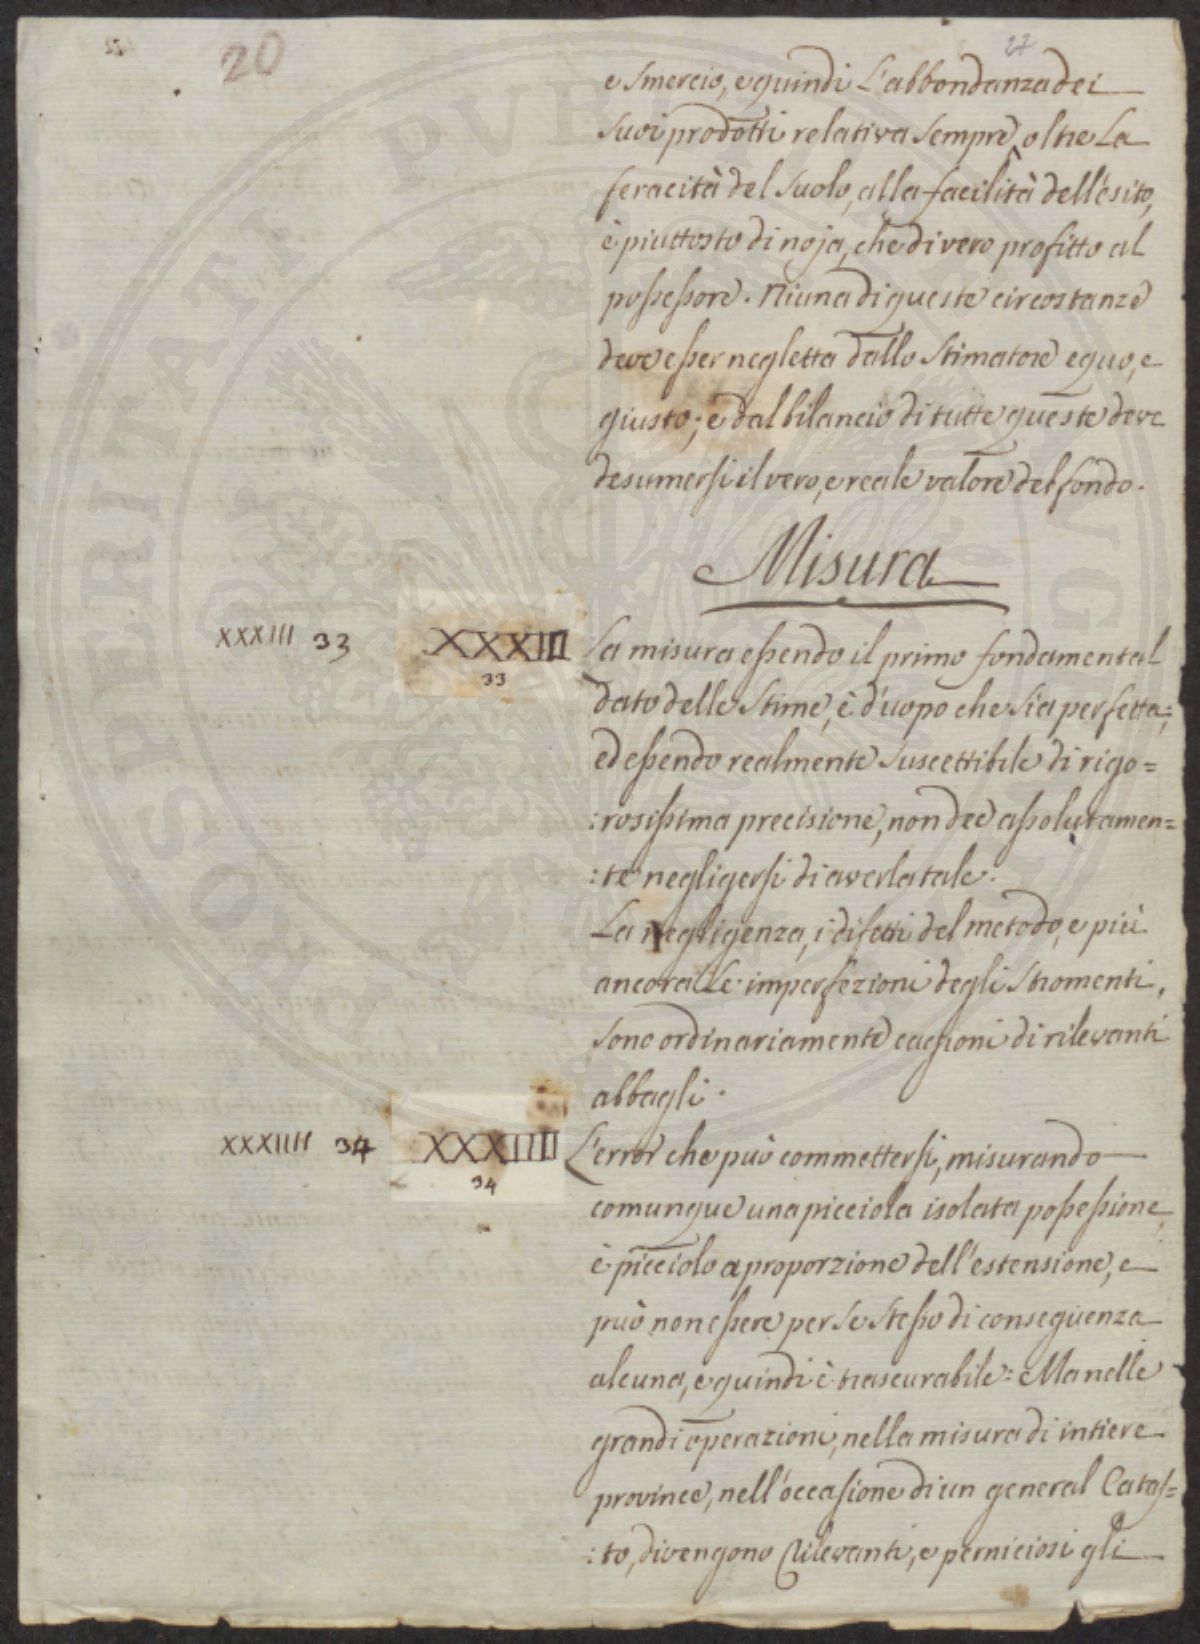 20
27
e smercio, e quindi l'abbondanza dei
suoi prodotti relativa sempre, oltre la
feracità del suolo, alla facilità dell'esito,
è piuttosto di noja, che di vero profitto al
possessore. Niuna di queste circostanze
deve esser negletta dallo Stimatore equo, e
giusto; e dal bilancio di tutte queste deve
desumersi il vero, e reale valore del fondo.
Misura
XXXIII 33 XXXIII La misura essendo il primo fondamental
33
dato delle Stime, è d'uopo che sia perfetta;
ed essendo realmente suscettibile di rigo=
:rosissima precisione, non dee assolutamen=
:te negligersi di averla tale.
La negligenza, i difetti del metodo, e più
ancora le imperfezioni degli stromenti,
sono ordinariamente cagioni di rilevanti
abbagli.
XXXIIII 34 XXXIIII L'error che può commettersi, misurando
34
comunque una picciola isolata possessione,
è picciolo a proporzione dell'estensione, e
può non essere per se stesso di conseguenza
alcuna, e quindi è trascurabile: Ma nelle
grandi operazioni, nella misura di intiere
province, nell'occasione di un general Catas=
:to, divengono rilevanti, e perniciosi gli
PROSPERITATI PVBLI AVG